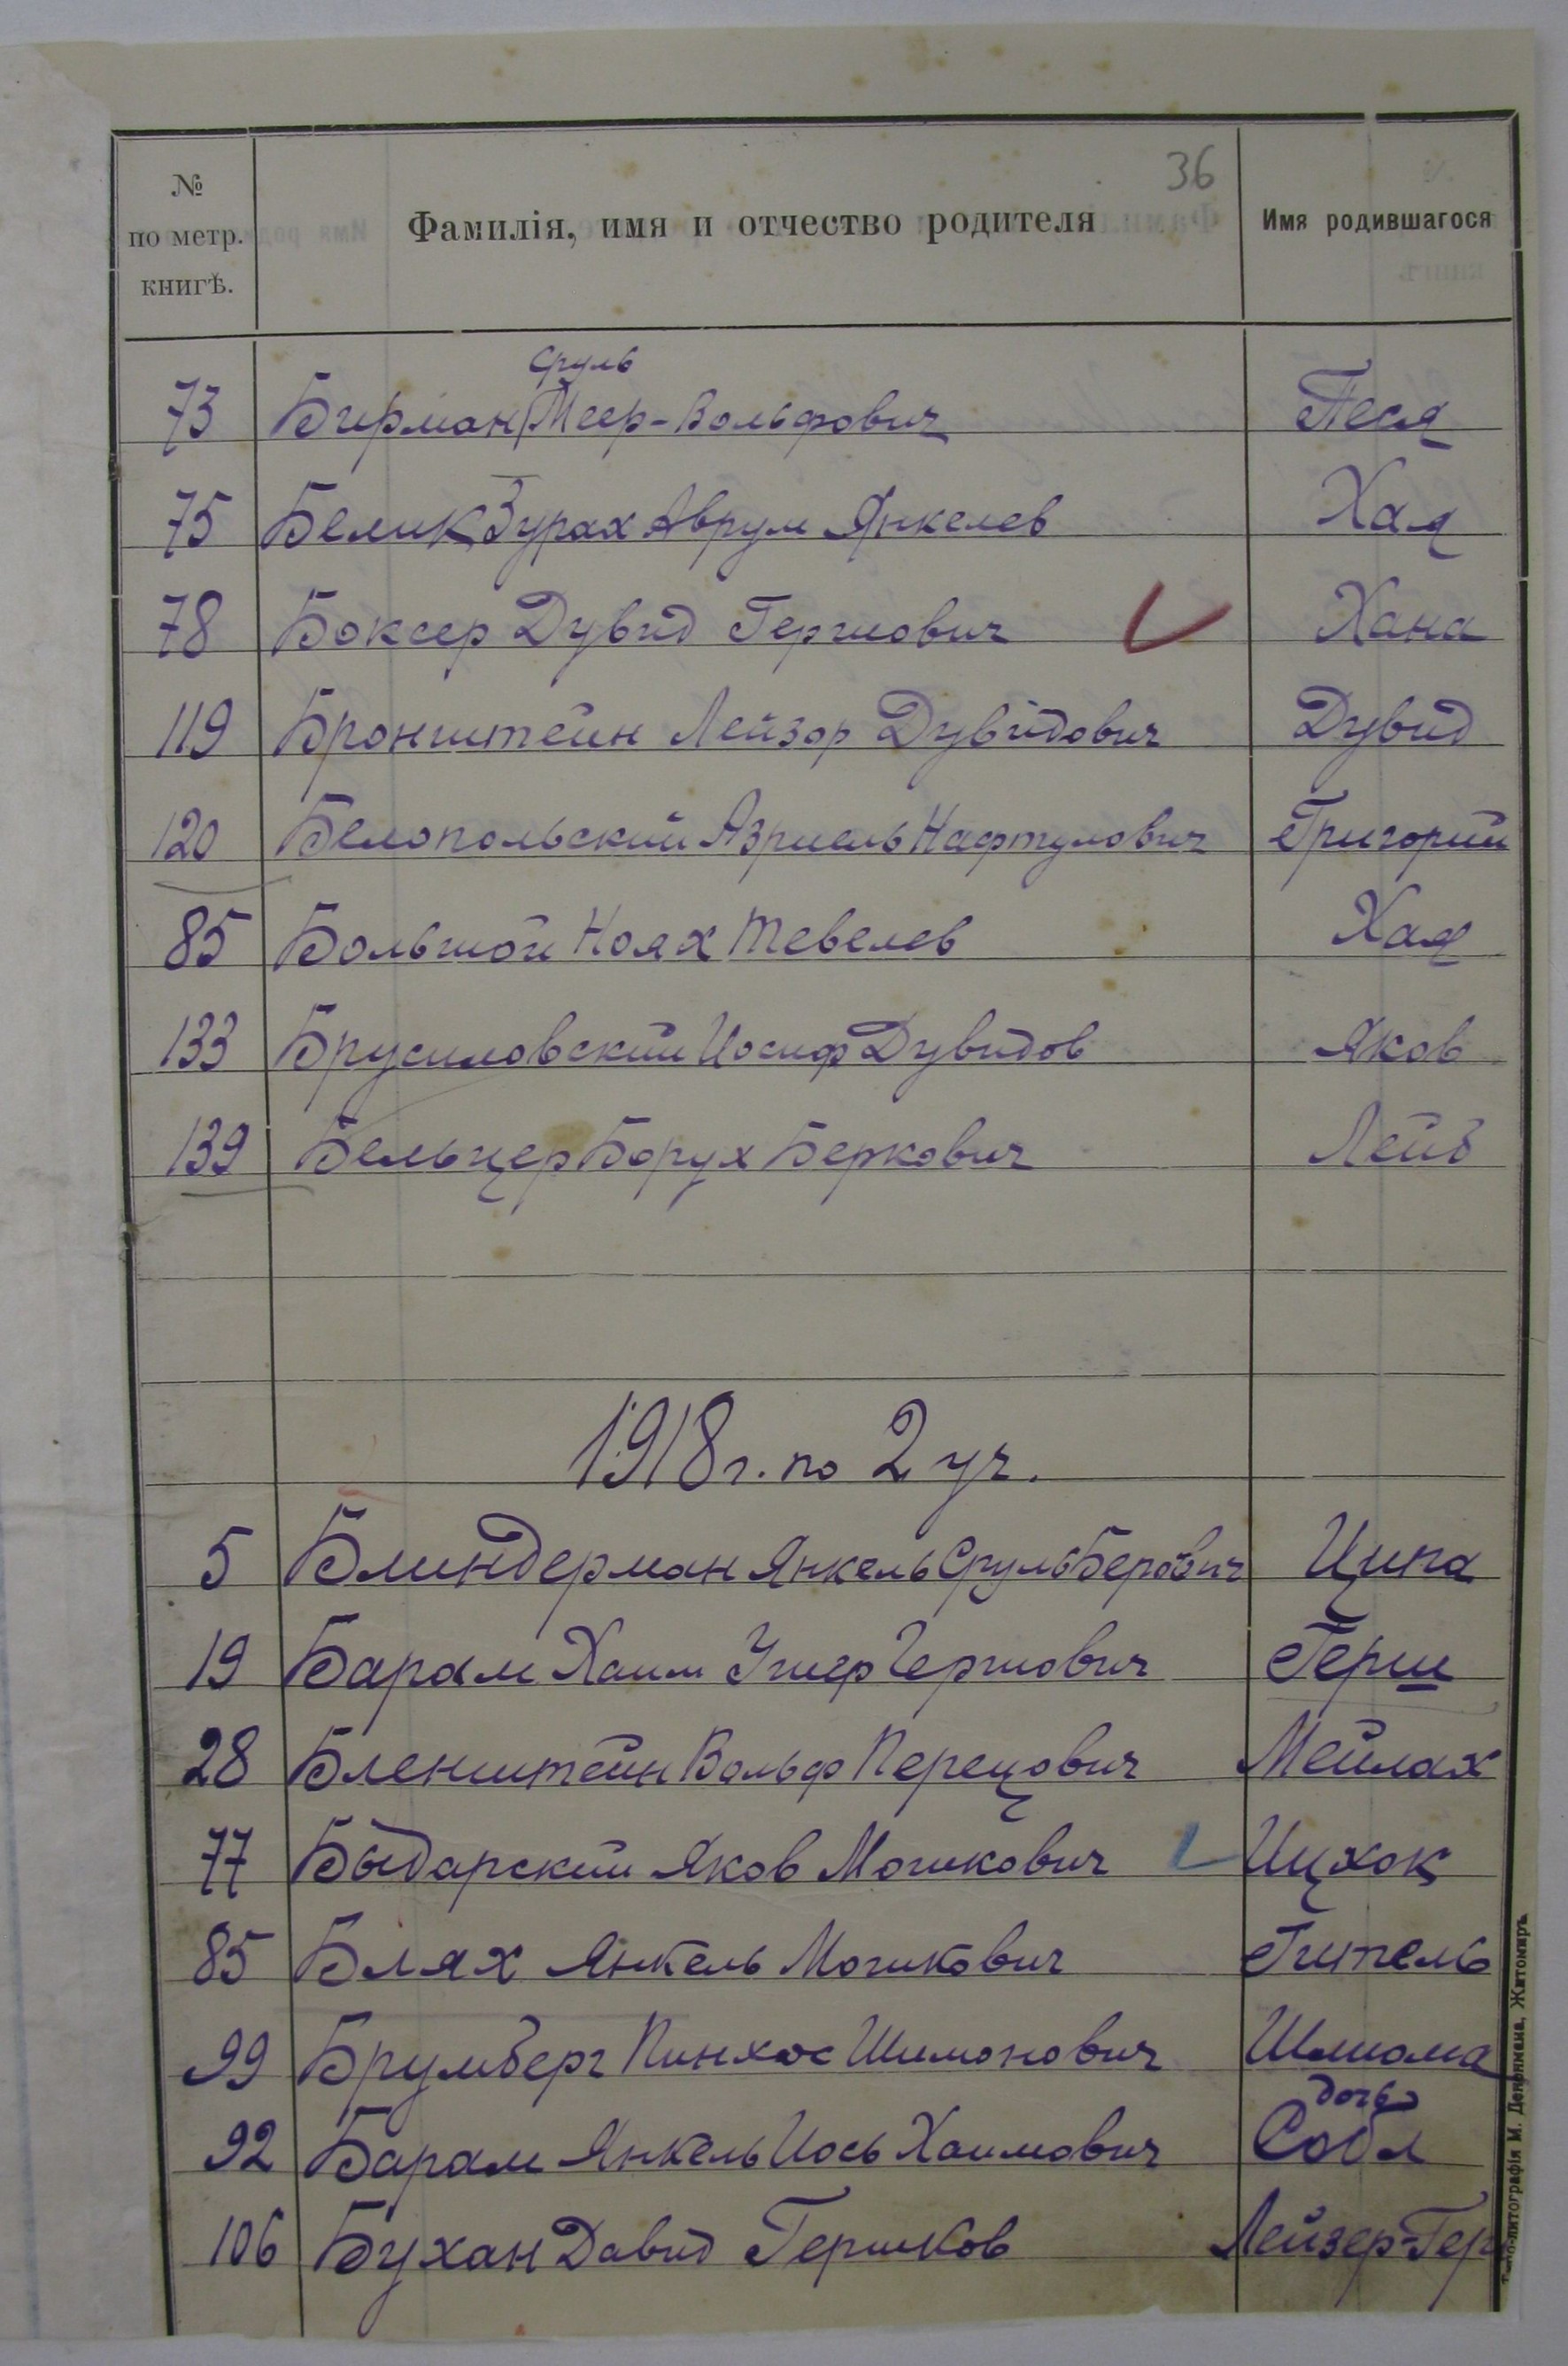 36
№ по метр. книгѣ. Фамилія, имя и отчество родителя Имя родившагося
Сруль
73 Бирман Меер-Вольфович Песя
75 Белик Зурах Аврум Янкелев Хая
78 Боксер Дувид Гершович Хана
119 Бронштейн Лейзор Дувидович Дувид
120 Белопольский Азриель Нафтулович Григорий
85 Большой Ноях Тевелев Хая
133 Брусиловский Иосиф Дувидов Яков
139 Бельцер Борух Беркович Лейб
1918 г. по 2 уч.
5 Блиндерман Янкель Сруль Берович Ципа
19 Барам Хаим Ушер Гершович Герш
28 Бленштейн Вольф Перецович Мейлах
77 Быдарский Яков Мошкович Ицхок
85 Блях Янкель Мошкович Гитель
99 Брумберг Пинхос Шимонович Шлиома
дочь
92 Барам Янкель Иось Хаимович Собл
106 Бухан Давид Гершков Лейзер-Гер
Типо-литографія М. Дененмана, Житомиръ